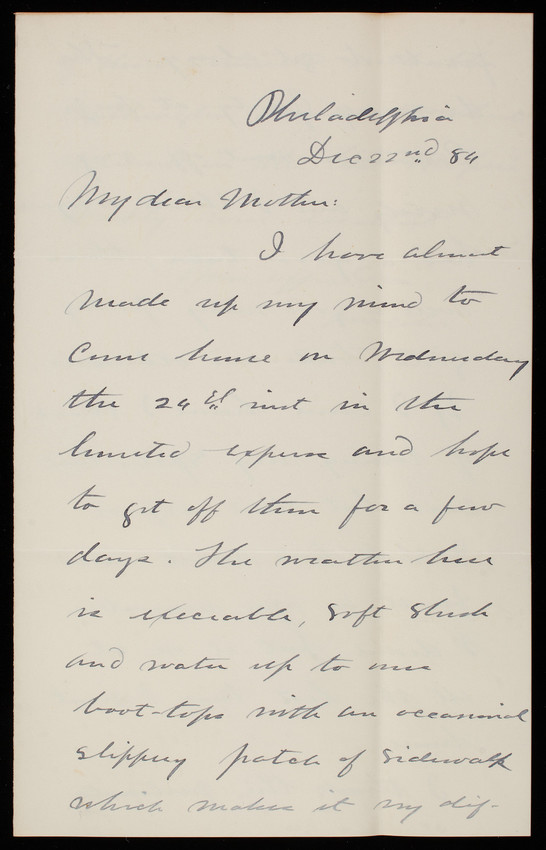 Philadelphia
Dec 22nd 84
My dear Mother:
I have almost
made up my mind to
Come home on Wednesday
the 24th inst in the
limited express and hope
to get off then for a few
days. The weather here
is execrable, soft slush
and water up to ones
boot-tops with an occasional
slippery patch of sidewalk
which makes it my dif-